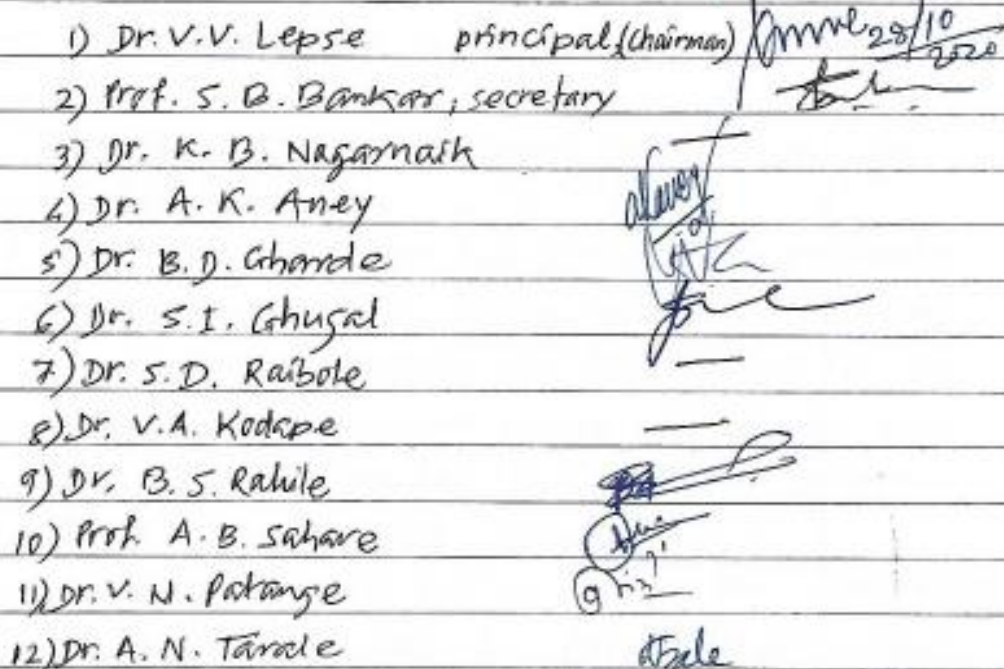 1) Dr. V.V. Lepse principal (Chairman) 28/10/2020
2) Prof. S. B. Bankar, secretary
3) Dr. K. B. Nagarnaik —
4) Dr. A. K. Aney
5) Dr. B. D. Gharde
6) Dr. S. I. Ghugal
7) Dr. S. D. Raibole —
8) Dr. V.A. Kodape —
9) Dr. B. S. Rahile
10) Prof. A. B. Sahare
11) Dr. V. N. Patange
12) Dr. A. N. Tarale